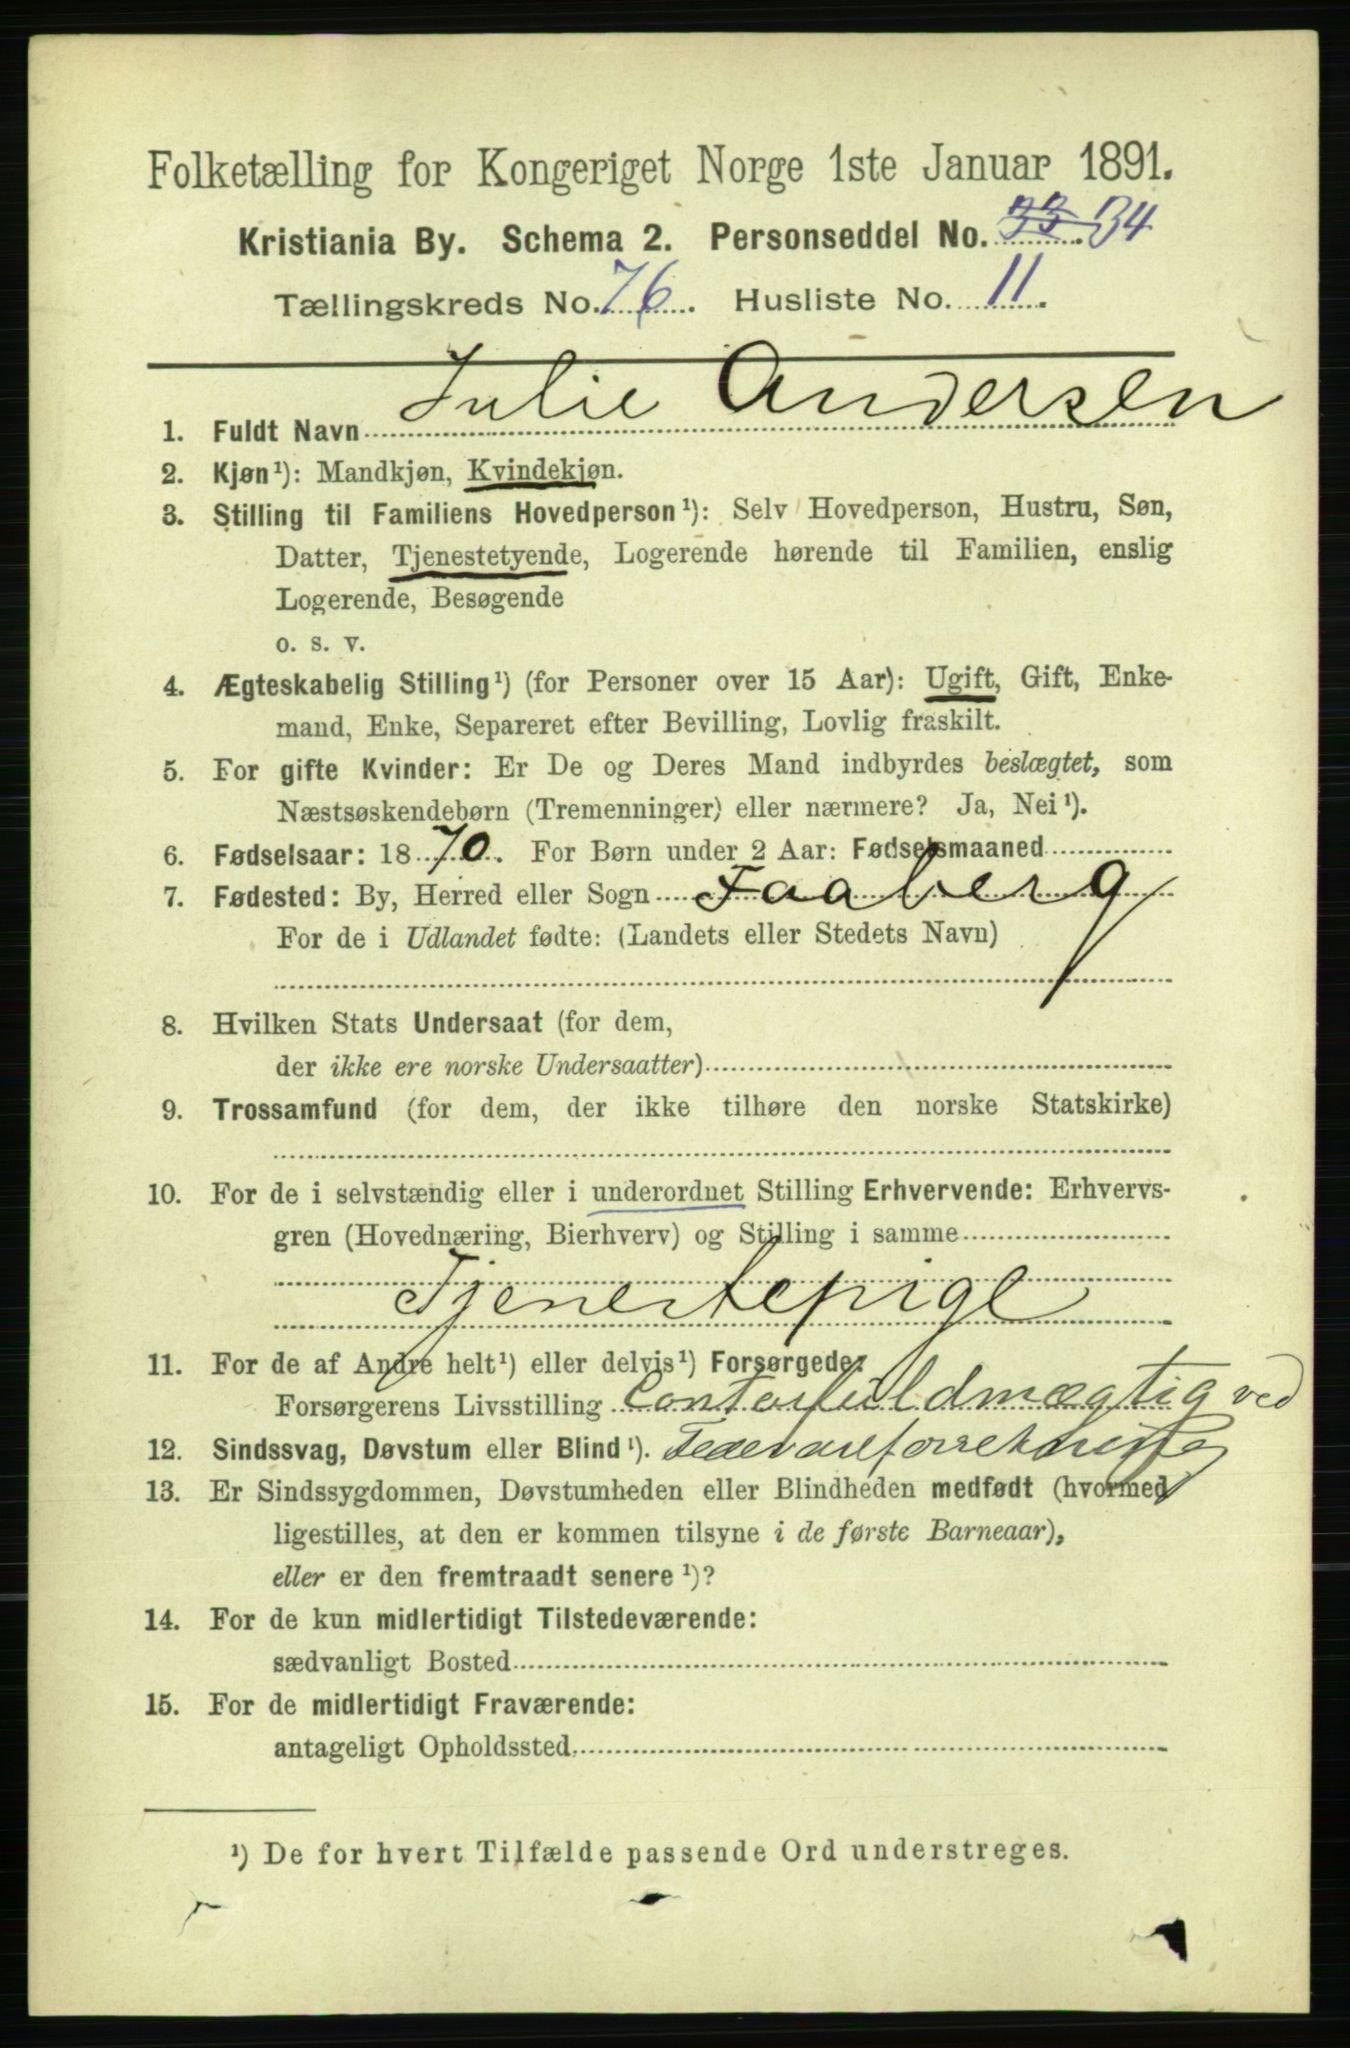 Folketælling for Kongeriget Norge 1ste Januar 1891.
Kristiania By. Schema 2. Personseddel No. 33 34
Tællingskreds No. 76. Husliste No. 11.
Julie Andersen
1. Fuldt Navn
2. Kjøn¹): Mandkjøn, Kvindekjøn.
3. Stilling til Familiens Hovedperson¹): Selv Hovedperson, Hustru, Søn,
Datter, Tjenestetyende, Logerende hørende til Familien, enslig
Logerende, Besøgende
o. s. v.
4. Ægteskabelig Stilling¹) (for Personer over 15 Aar): Ugift, Gift, Enke-
mand, Enke, Separeret efter Bevilling, Lovlig fraskilt.
5. For gifte Kvinder: Er De og Deres Mand indbyrdes beslægtet, som
Næstsøskendebørn (Tremenninger) eller nærmere? Ja, Nei¹).
6. Fødselsaar: 1870. For Børn under 2 Aar: Fødselsmaaned
7. Fødested: By, Herred eller Sogn Faaberg
For de i Udlandet fødte: (Landets eller Stedets Navn)
8. Hvilken Stats Undersaat (for dem,
der ikke ere norske Undersaatter)
9. Trossamfund (for dem, der ikke tilhøre den norske Statskirke)
10. For de i selvstændig eller i underordnet Stilling Erhvervende: Erhvervs-
gren (Hovednæring, Bierhverv) og Stilling i samme
Tjenestepige
11. For de af Andre helt¹) eller delvis¹) Forsørgede:
Forsørgerens Livsstilling Contorfuldmægtig ved
12. Sindssvag, Døvstum eller Blind¹).
13. Er Sindssygdommen, Døvstumheden eller Blindheden medfødt (hvormed
ligestilles, at den er kommen tilsyne i de første Barneaar),
eller er den fremtraadt senere¹)?
14. For de kun midlertidigt Tilstedeværende:
sædvanligt Bosted
15. For de midlertidigt Fraværende:
antageligt Opholdssted
¹) De for hvert Tilfælde passende Ord understreges.